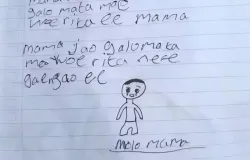 galo mata mae
woe rita ee mama
mama jao galo mata
ma woe rita nefe
gaengao ee
molo mama